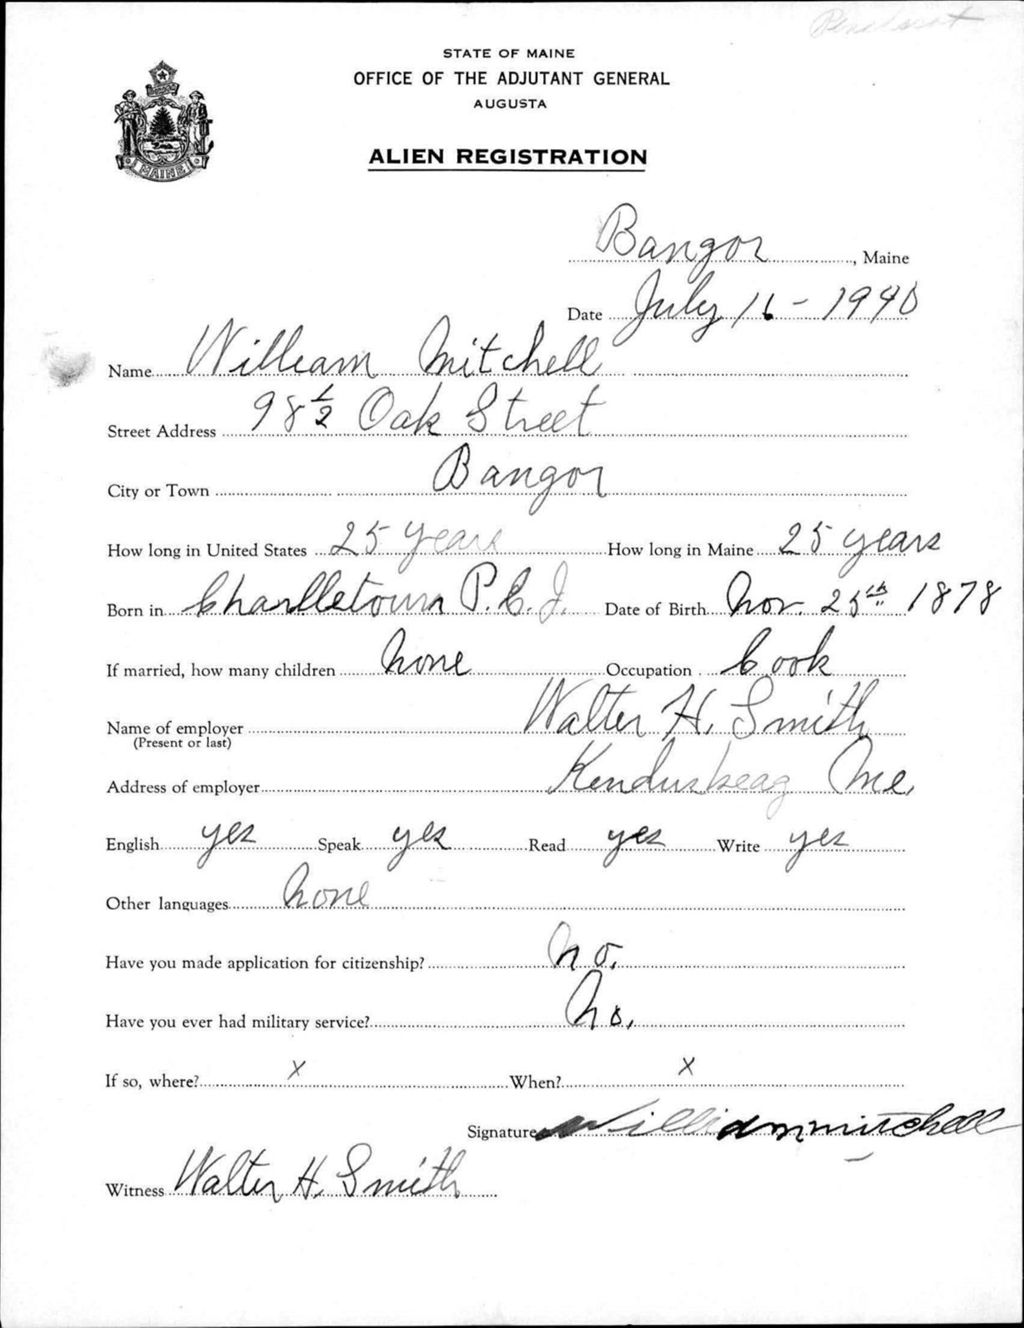 Penobscot
STATE OF MAINE
OFFICE OF THE ADJUTANT GENERAL
AUGUSTA
MAINE
ALIEN REGISTRATION
Bangor, Maine
Date July 16 - 1940
Name William Mitchell
Street Address 98 1/2 Oak Street
City or Town Bangor
How long in United States 25 years How long in Maine 25 years
Born in Charlletown P.E.I. Date of Birth Nov. 25th 1878
If married, how many children None Occupation Cook
Name of employer Walter H. Smith
(Present or last)
Address of employer Kenduskeag Me.
English yes Speak yes Read yes Write yes
Other languages None
Have you made application for citizenship? No.
Have you ever had military service? No.
If so, where? x When? x
Signature William mitchell
Witness Walter H. Smith